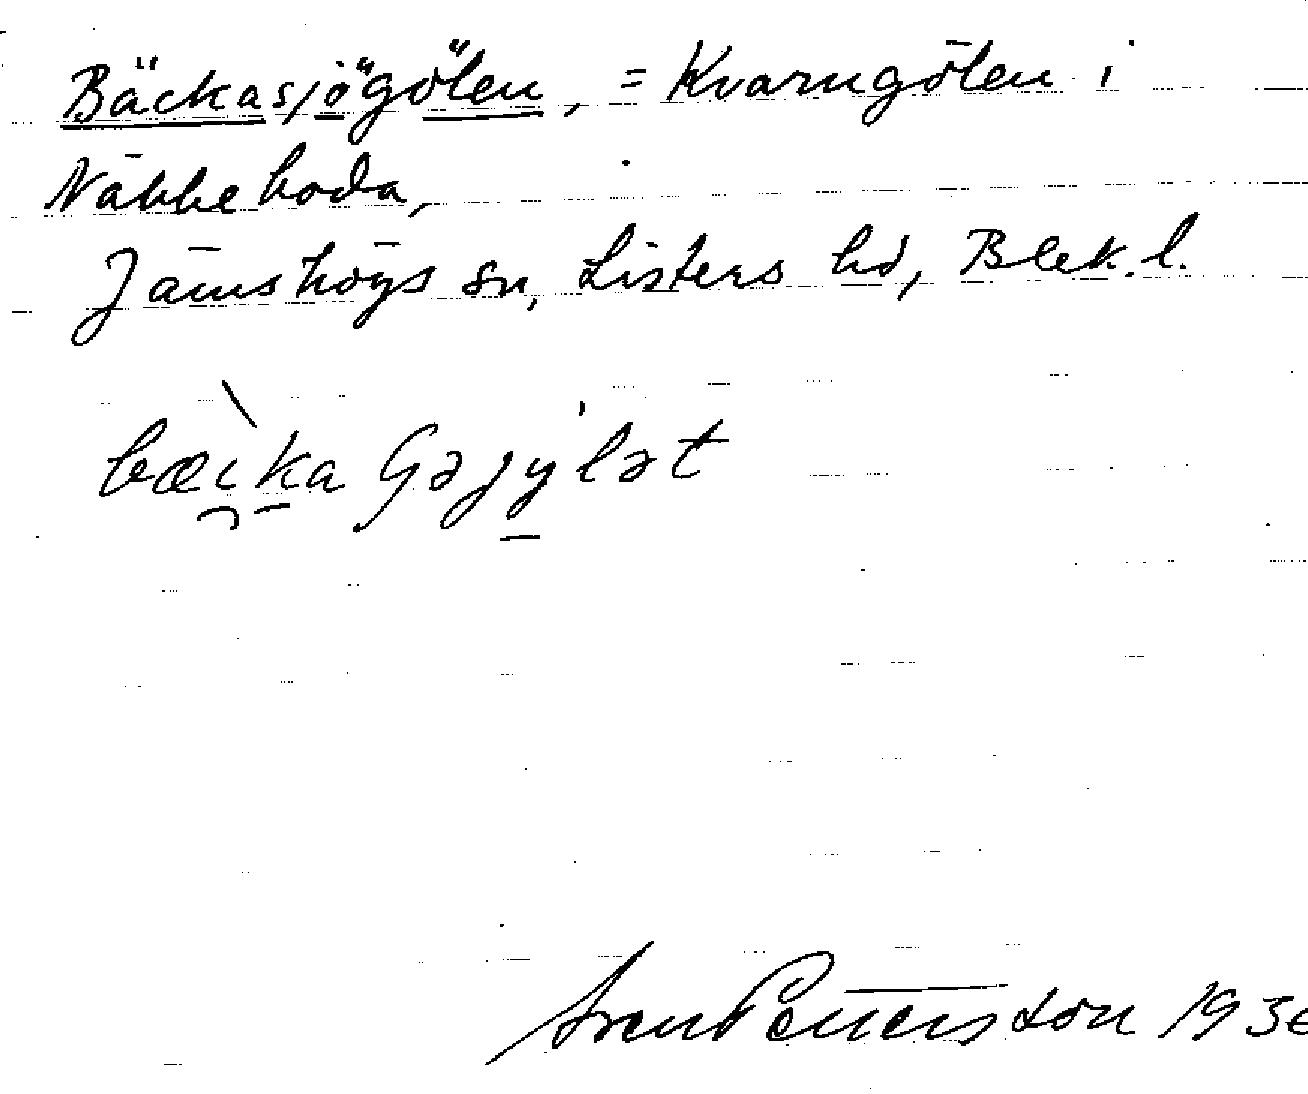 Bäckasjögölen, = Kvarngölen i
Näbbeboda,
Jämshögs sn, Listers hd, Blek. l.
Sven Petterson 193